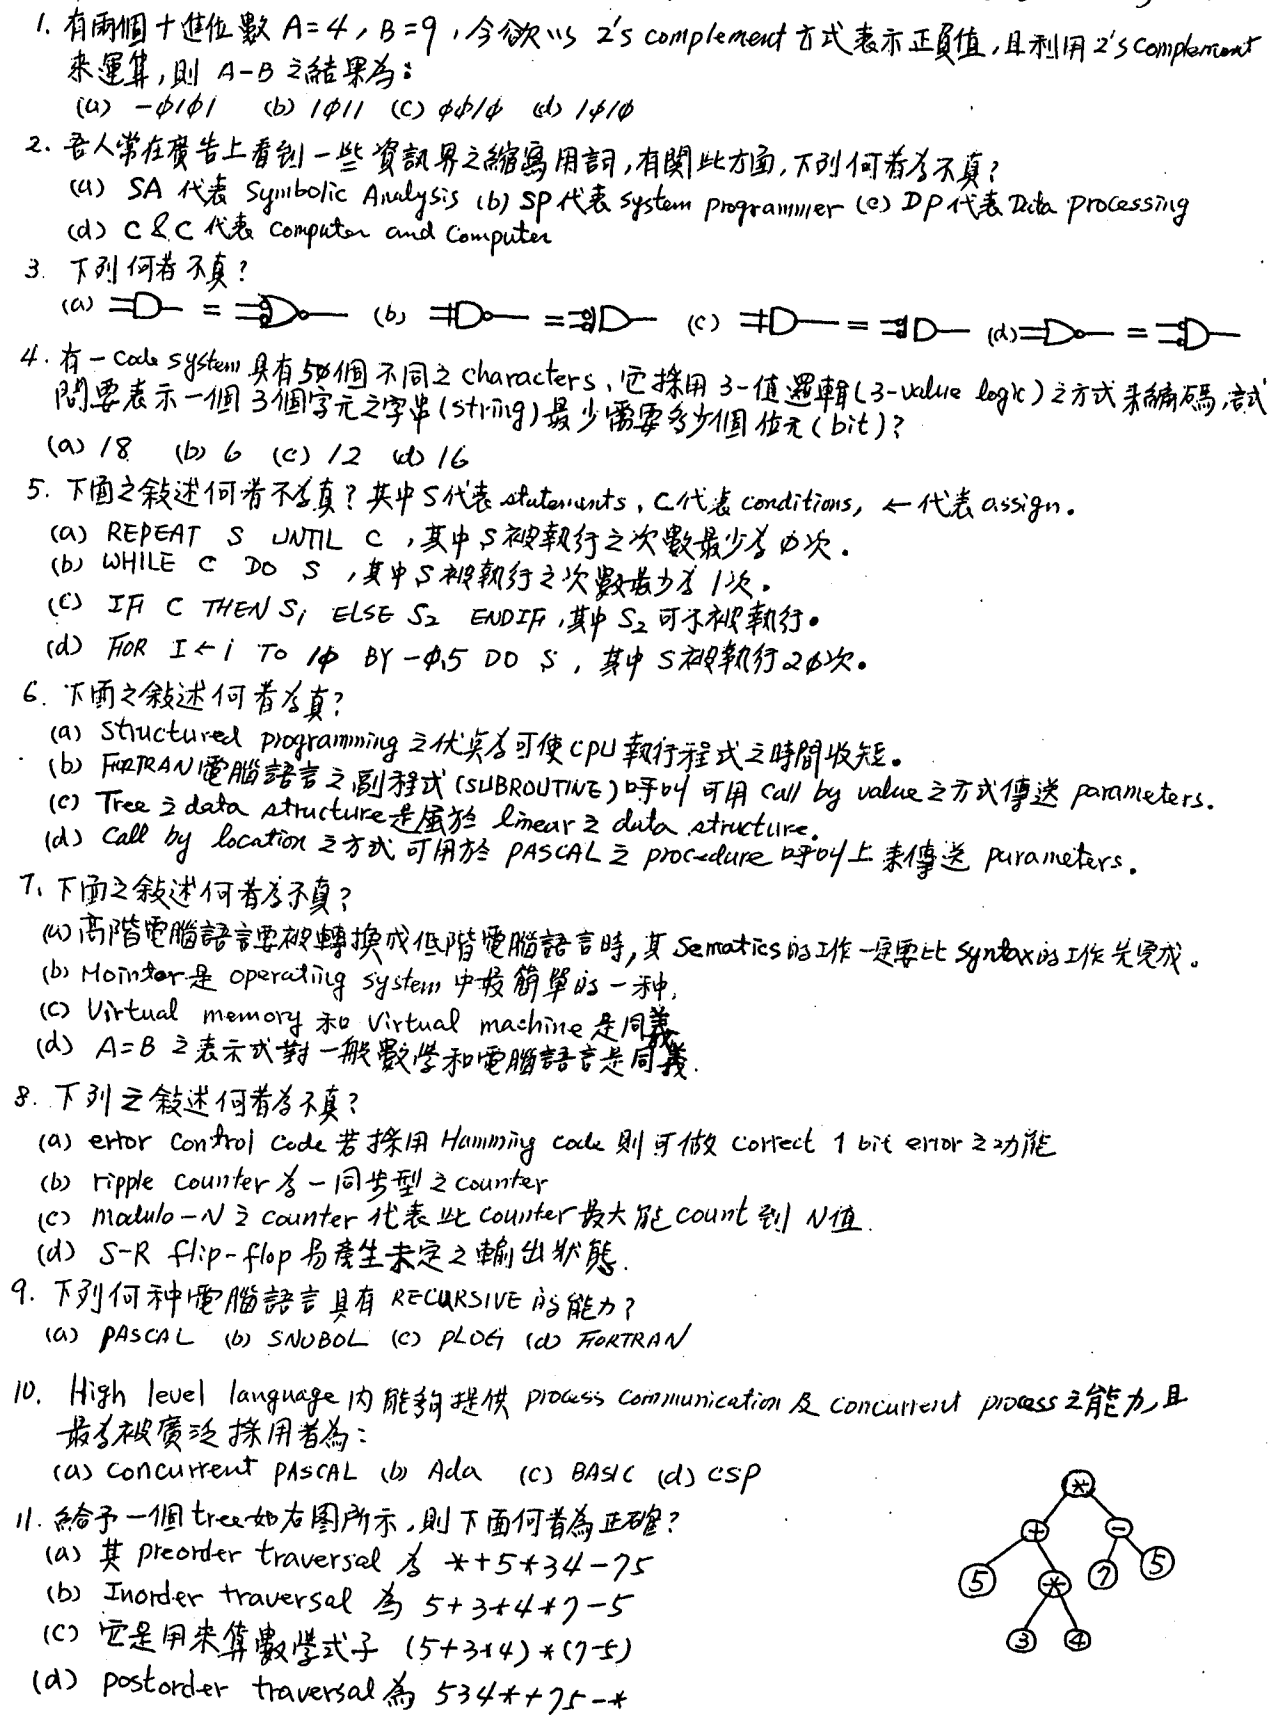 1. 有兩個十進位數 A=4，B=9，今欲以 2's complement 方式表示正負值，且利用 2's complement
來運算，則 A-B 之結果為：
(a) -φ1φ1 (b) 1φ11 (c) φφ1φ (d) 1φ1φ
2. 吾人常在廣告上看到一些資訊界之縮寫用詞，有關此方面，下列何者為不真？
(a) SA 代表 Symbolic Analysis (b) SP代表 system programmer (c) DP代表 Data Processing
(d) C&C 代表 computer and computer
3. 下列何者不真？
(a) = (b) = (c) = (d) =
4. 有一 code system 具有 5φ個不同之 characters，它採用 3-值邏輯(3-value logic)之方式來編碼，試
問要表示一個 3個字元之字串(string)最少需要多少個位元(bit)？
(a) 18 (b) 6 (c) 12 (d) 16
5. 下面之敍述何者不為真？其中S代表 statements，C代表 conditions，←代表 assign。
(a) REPEAT S UNTIL C ，其中S被執行之次數最少為φ次。
(b) WHILE C DO S ，其中S被執行之次數最少為1次。
(c) IF C THEN S₁ ELSE S₂ ENDIF，其中 S₂ 可不被執行。
(d) FOR I←1 TO 1φ BY -φ.5 DO S ，其中 S被執行2φ次。
6. 下面之敍述何者為真？
(a) structured programming 之優點為可使CPU執行程式之時間收短。
(b) FORTRAN電腦語言之副程式(SUBROUTINE)呼叫可用 call by value之方式傳送 parameters.
(c) Tree 之 data structure是屬於 linear 之 data structure.
(d) call by location 之方式可用於 PASCAL之 procedure 呼叫上來傳送 parameters.
7. 下面之敍述何者為不真？
(a) 高階電腦語言要被轉換成低階電腦語言時，其 Sematics的工作一定要比 syntax的工作先完成。
(b) Mointor是 operating system 中最簡單的一种.
(c) Virtual memory 和 virtual machine 是同義
(d) A=B 之表示式對一般數學和電腦語言是同義.
8. 下列之敍述何者為不真？
(a) error control code 若採用 Hamming code 則可做 correct 1 bit error 之功能
(b) ripple counter 為一同步型之counter
(c) modulo-N 之 counter 代表此counter最大能count到 N值.
(d) S-R flip-flop 易產生未定之輸出狀態.
9. 下列何种電腦語言具有 RECURSIVE 的能力？
(a) PASCAL (b) SNOBOL (c) PLOG (d) FORTRAN
10. High level language 內能夠提供 process communication 及 concurrent process 之能力，且
最為被廣泛採用者為：
(a) concurrent PASCAL (b) Ada (c) BASIC (d) CSP
11. 給予一個tree如右图所示，則下面何者為正確？
(a) 其 preorder traversal 為 *+5*34-75
(b) Inorder traversal 為 5+3*4*7-5
(c) 它是用來算數學式子 (5+3*4)*(7-5)
(d) postorder traversal 為 534*+75-*
*
+ -
5 * 7 5
3 4